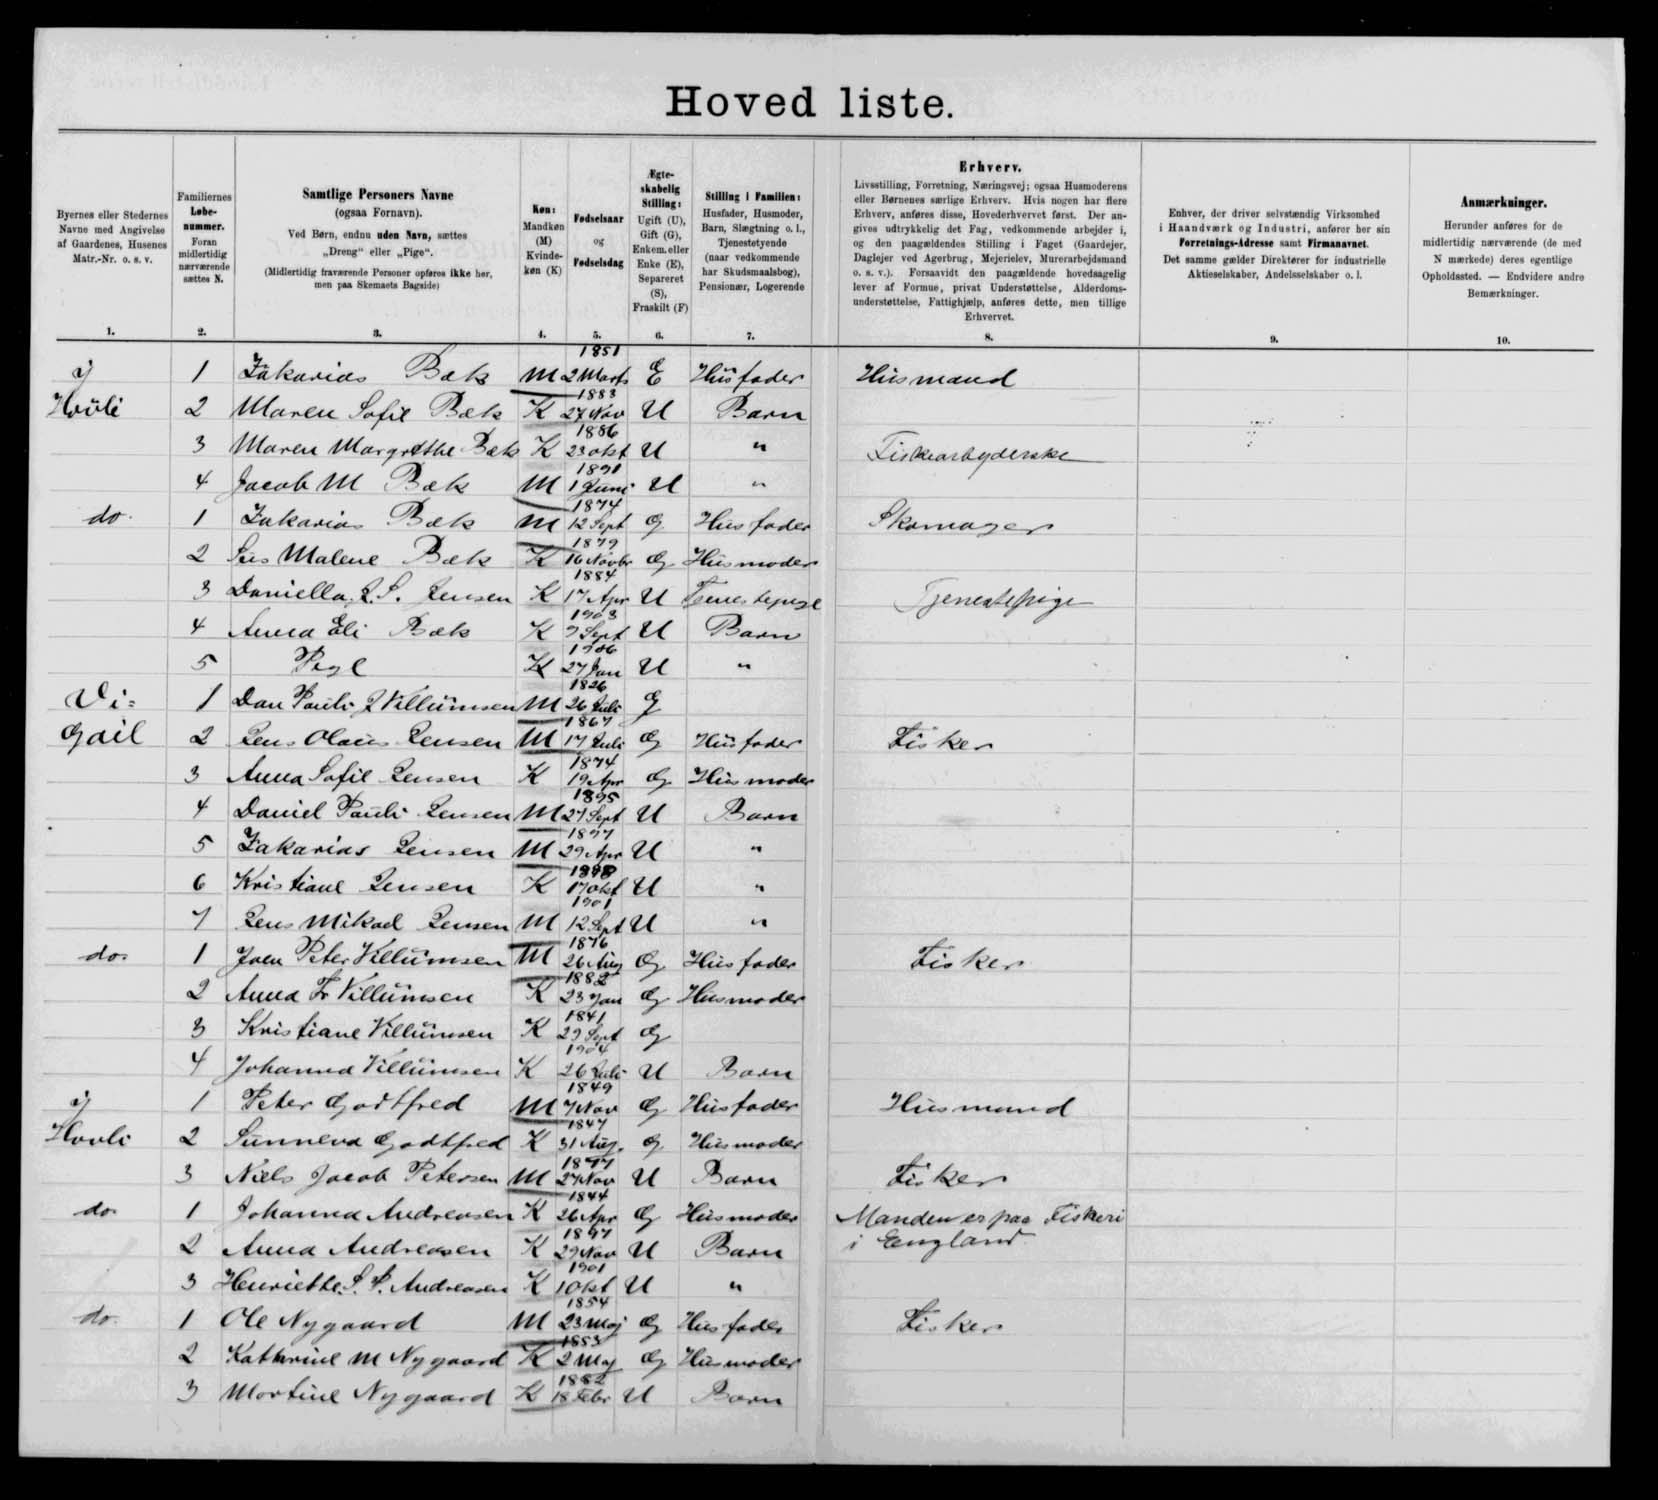 Hoved liste.
Byernes eller Stedernes Navne med Angivelse af Gaardenes, Husenes Matr.-Nr. o. s. v.
Familiernes Løbe-nummer. Foran midlertidig nærværende sættes N.
Samtlige Personers Navne
(ogsaa Fornavn).
Ved Børn, endnu uden Navn, sættes
„Dreng“ eller „Pige“.
(Midlertidig fraværende Personer opføres ikke her,
men paa Skemaets Bagside)
Køn: Mandkøn (M) Kvinde-køn (K)
Fødselsaar og Fødselsdag
Ægte-skabelig Stilling: Ugift (U), Gift (G), Enkem. eller Enke (E), Separeret (S), Fraskilt (F)
Stilling i Familien: Husfader, Husmoder, Barn, Slægtning o. l., Tjenestetyende (naar vedkommende har Skudsmaalsbog), Pensionær, Logerende
Erhverv.
Livsstilling, Forretning, Næringsvej; ogsaa Husmoderens
eller Børnenes særlige Erhverv. Hvis nogen har flere
Erhverv, anføres disse, Hovederhvervet først. Der an-
gives udtrykkelig det Fag, vedkommende arbejder i,
og den paagældendes Stilling i Faget (Gaardejer,
Daglejer ved Agerbrug, Mejerielev, Murerarbejdsmand
o. s. v.). Forsaavidt den paagældende hovedsagelig
lever af Formue, privat Understøttelse, Alderdoms-
understøttelse, Fattighjælp, anføres dette, men tillige
Erhvervet.
Enhver, der driver selvstændig Virksomhed
i Haandværk og Industri, anfører her sin
Forretnings-Adresse samt Firmanavnet.
Det samme gælder Direktører for industrielle
Aktieselskaber, Andelsselskaber o. l.
Anmærkninger.
Herunder anføres for de
midlertidig nærværende (de med
N mærkede) deres egentlige
Opholdssted. — Endvidere andre
Bemærkninger.
1. 2. 3. 4. 5. 6. 7. 8. 9. 10.
J 1 Zakarias Bæk M 1851 2 Marts E Husfader Husmand
Hovli 2 Maren Sofie Bæk K 1883 27 Nov U Barn
3 Maren Margrethe Bæk K 1886 23 okt U " Fiskearbyderske
4 Jacob M Bæk M 1891 1 Juni U "
do 1 Zakarias Bæk M 1874 12 Sept G Husfader Skomager
2 Sus Malene Bæk K 1879 16 Novbr G Husmoder
3 Daniella J. S. Jensen K 1884 17 Apr U Tjenestepige Tjenestepige
4 Anna Eli Bæk K 1903 9 Sept U Barn
5 Pige K 1906 27 Jan U "
Vi= 1 Dan Pauli J Villumsen M 1826 26 Juli G
Gail 2 Jens Olaus Jensen M 1867 17 Juli G Husfader Fisker
3 Anna Sofie Jensen K 1874 19 Apr G Husmoder
4 Daniel Pauli Jensen M 1895 27 Sept U Barn
5 Zakarias Jensen M 1897 29 Apr U "
6 Kristiane Jensen K 17 okt U "
7 Jens Mikael Jensen M 1901 12 Sept U "
do 1 Joen Peter Villumsen M 1876 26 Aug G Husfader Fisker
2 Anna Fr Villumsen K 1882 23 Jan G Husmoder
3 Kristiane Villumsen K 1841 29 Sept G
4 Johanna Villumsen K 1904 26 Juli U Barn
J 1 Peter Godtfred M 1849 7 Nov G Husfader Husmand
Hovli 2 Sunneva Godtfred K 1847 31 Aug. G Husmoder
3 Niels Jacob Petersen M 27 Nov U Barn Fisker
do 1 Johanna Andreasen K 26 Apr G Husmoder Manden er paa Fiskeri
i England
2 Anna Andreasen K 1897 29 Nov U Barn
3 Henriette. S. S. Andreasen K 1901 1 Okt U "
do 1 Ole Nygaard M 1854 23 Maj G Husfader Fisker
2 Kathrine M Nygaard K 1853 2 Maj G Husmoder
3 Mortine Nygaard K 1882 18 Febr U Barn